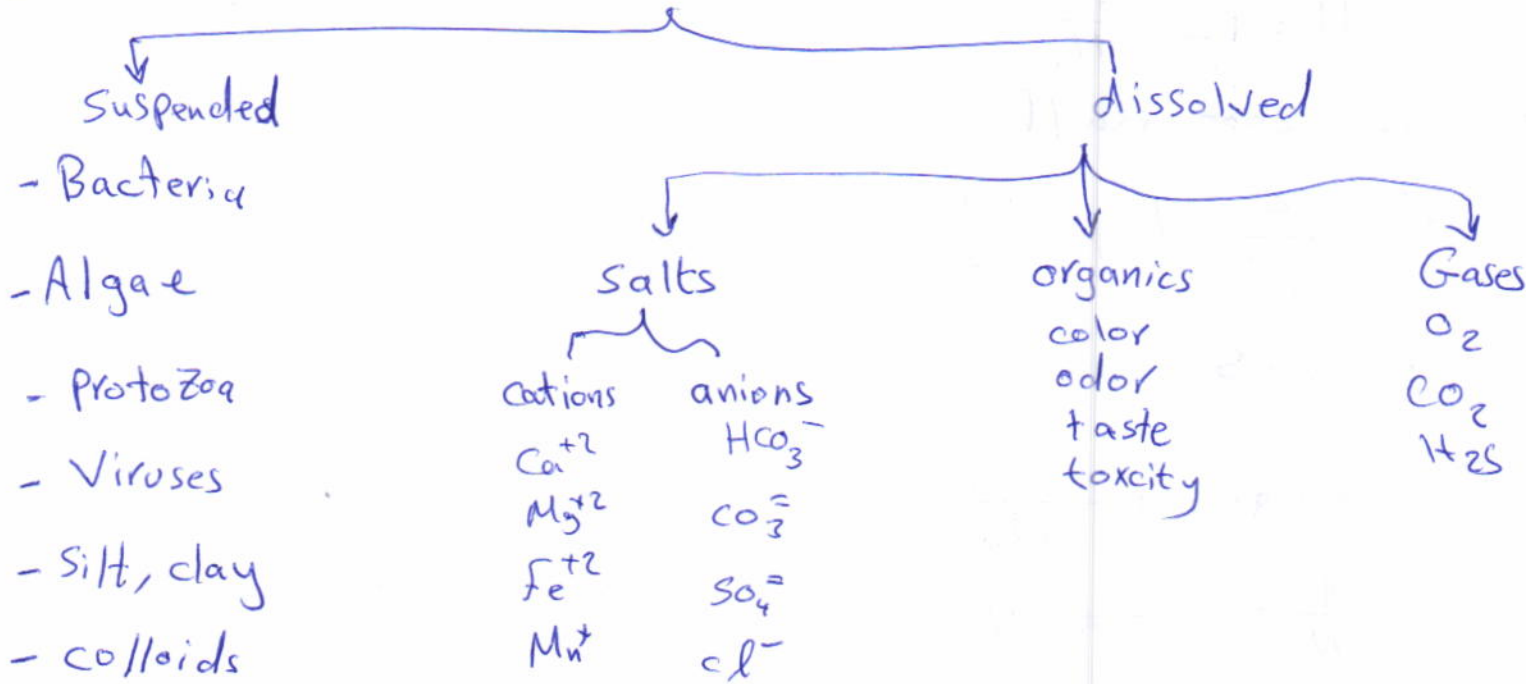 suspended
dissolved
- Bacteria
- Algae
- Protozoa
- Viruses
- Silt, clay
- colloids
salts
cations
Ca⁺²
Mg⁺²
Fe⁺²
Mn⁺
anions
HCO₃⁻
CO₃⁼
SO₄⁼
Cl⁻
organics
color
odor
taste
toxcity
Gases
O₂
CO₂
H₂S